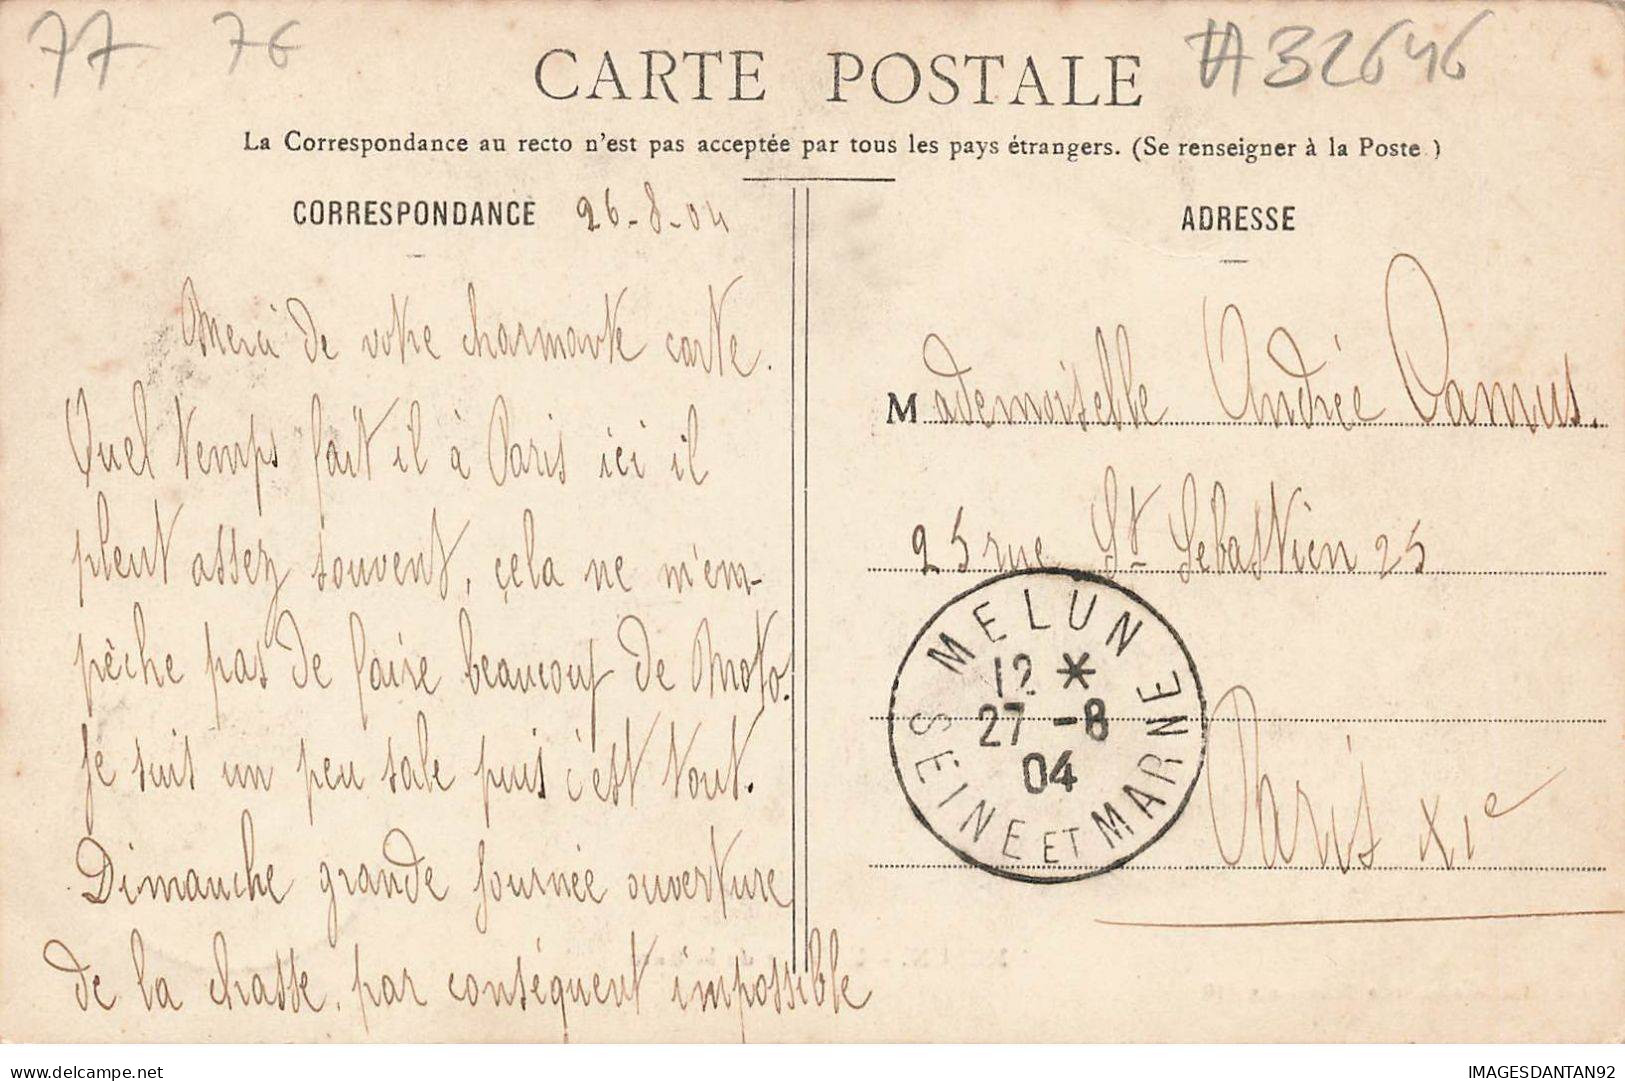 77 7€ #32646
CARTE POSTALE
La Correspondance au recto n'est pas acceptée par tous les pays étrangers. (Se renseigner à la Poste.)
CORRESPONDANCE 26-8-04
Merci de votre charmante carte.
Quel temps fait il à Paris ici il
pleut assez souvent, çela ne m'em-
pêche pas de faire beaucoup de Moto.
Je suis un peu sale puis c'est tout.
Dimanche grande journée ouverture
de la chasse, par conséquent impossible
ADRESSE
Mademoiselle Andrée Camus.
25 rue St Sebastien 25
Paris XIe
MELUN
12 *
27 -8
04
SEINE ET MARNE
delcampe.net
IMAGESDANTAN92